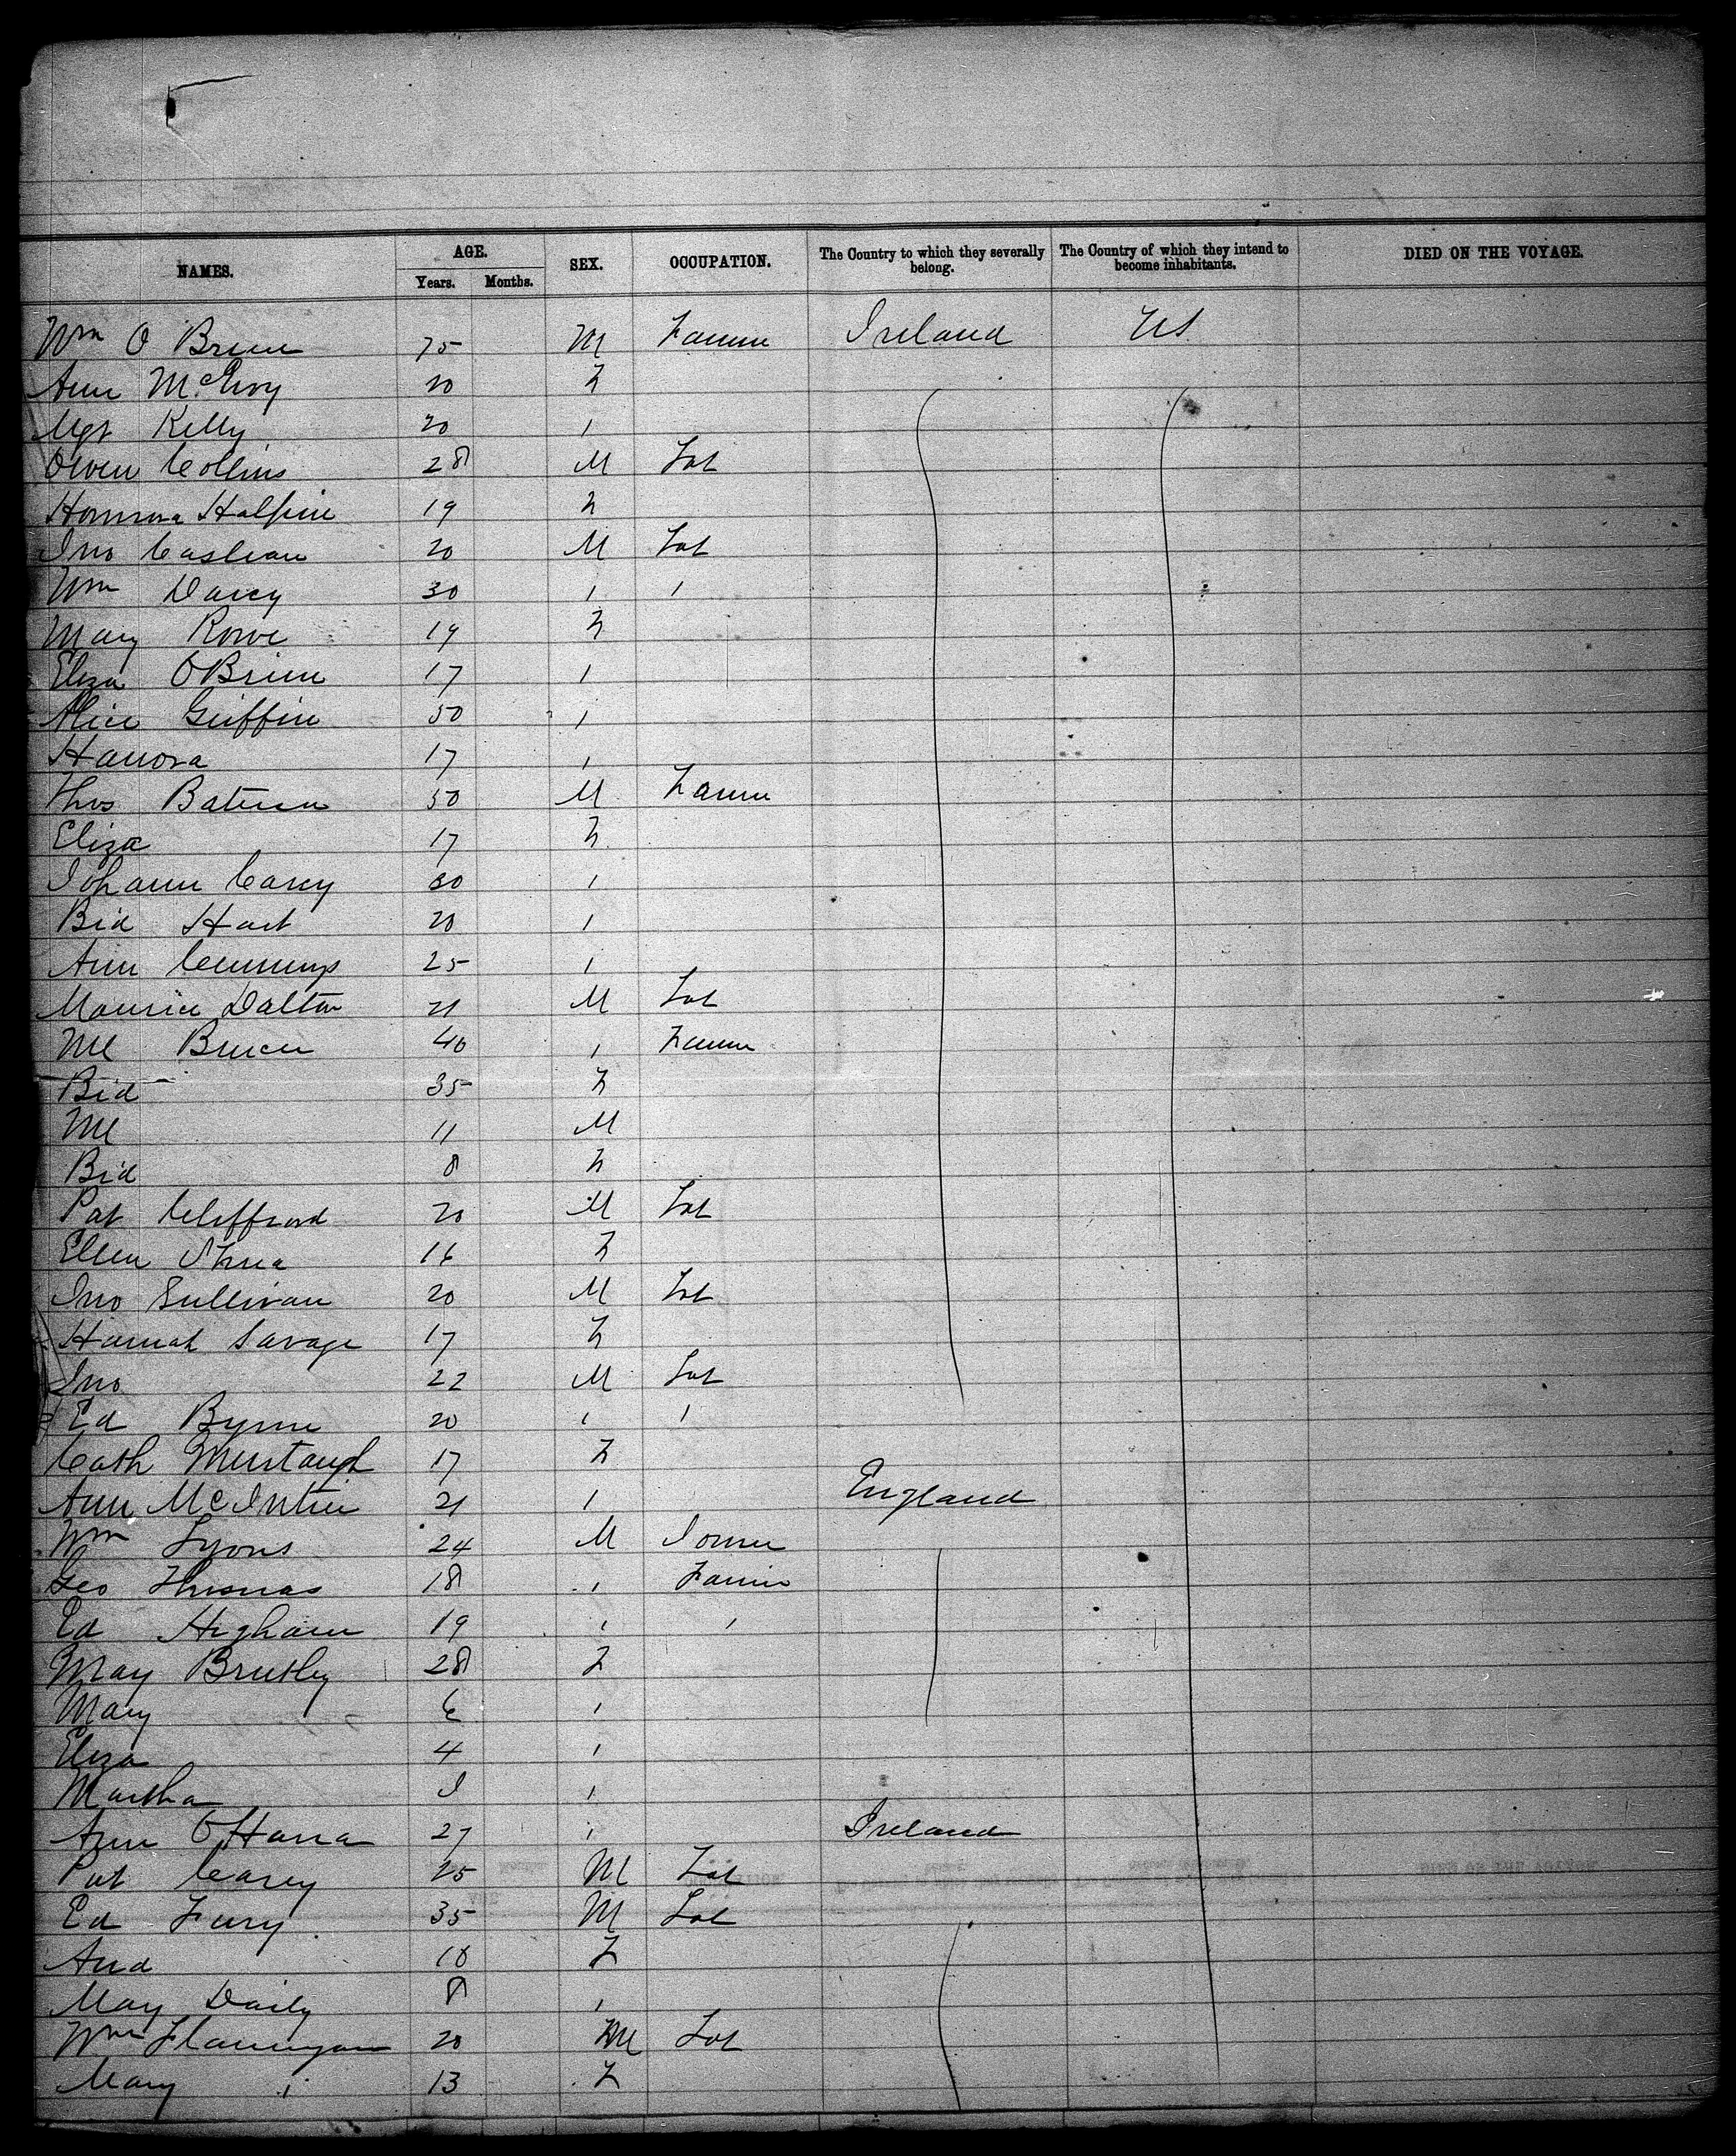 NAMES. AGE. SEX. OCCUPATION. The Country to which they severally belong. The Country of which they intend to become inhabitants. DIED ON THE VOYAGE.
Years. Months.
Wm O Brien 75 M Farmer Ireland US
Ann McEvoy 20 F
Mgt Kelly 20 1
Owen Collins 28 M Lab
Honnora Halpin 19 F
Jno Caslean 20 M Lab
Wm Darcy 30 1 1
Mary Rowe 19 F
Eliza OBrien 17 1
Alice Griffin 50 1
Hanora 17 1
Thos Bateman 50 M Farmer
Eliza 17 F
Johann Carey 30 1
Bid Hart 20 1
Ann Cummings 25 1
Maurice Dalton 21 M Lab
Ml 40 1 Farmer
Bid 35 F
Ml 11 M
Bid 8 F
Pat Cliffford 20 M Lab
Ellen Shea 16 F
Jno Sullivan 20 M Lab
Hannah Savage 17 F
Jno 22 M Lab
Ed Byrne 20 1 1
Cath Murtaugh 17 F
Ann McIntire 21 1 England
Wm Lyons 24 M Joiner
Geo Thomas 18 1 Farmer
Ed Higham 19 1 1
May 28 F
Mary 6 1
Eliza 4 1
Martha 1
Ann OHara 27 1 Ireland
Pat Carey 25 M Lab
Ed Fury 35 M Lab
And 18 F
May Daily 8 1
Wm Flannigan 20 M Lab
Mary 1 13 F